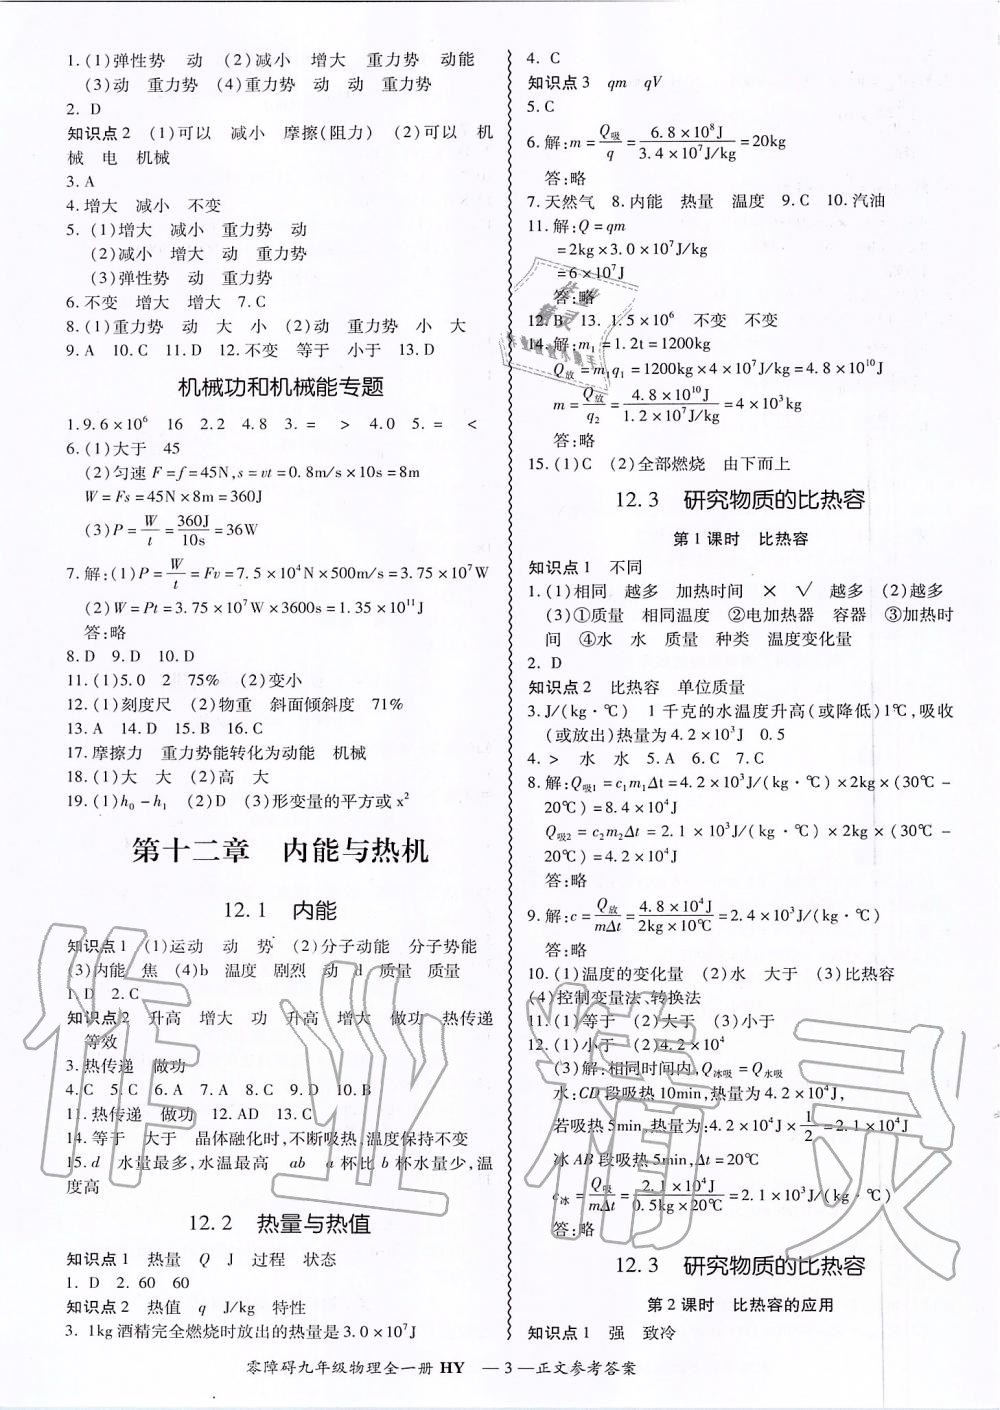 1. (1)弹性势　动　(2)减小　增大　重力势　动能
(3)动　重力势　(4)重力势　动　动　重力势
2. D
知识点2　(1)可以　减小　摩擦(阻力)　(2)可以　机
械　电　机械
3. A
4. 增大　减小　不变
5. (1)增大　减小　重力势　动
(2)减小　增大　动　重力势
(3)弹性势　动　重力势
6. 不变　增大　增大　7. C
8. (1)重力势　动　大　小　(2)动　重力势　小　大
9. A　10. C　11. D　12. 不变　等于　小于　13. D
机械功和机械能专题
1. 9.6×10⁶　16　2. 2　4.8　3. =　>　4. 0　5. =　<
6. (1)大于　45
(2)匀速 F=f=45N, s=vt=0.8m/s×10s=8m
W=Fs=45N×8m=360J
(3)P=W/t=360J/10s=36W
7. 解:(1)P=W/t=Fv=7.5×10⁴N×500m/s=3.75×10⁷W
(2)W=Pt=3.75×10⁷W×3600s=1.35×10¹¹J
答:略
8. D　9. D　10. D
11. (1)5.0　2　75%　(2)变小
12. (1)刻度尺　(2)物重　斜面倾斜度　71%
13. A　14. D　15. B　16. C
17. 摩擦力　重力势能转化为动能　机械
18. (1)大　大　(2)高　大
19. (1)h₀-h₁　(2)D　(3)形变量的平方或x²
第十二章　内能与热机
12.1　内能
知识点1　(1)运动　动　势　(2)分子动能　分子势能
(3)内能　焦　(4)b　温度　剧烈　动　d　质量　质量
1. D　2. C
知识点2　升高　增大　功　升高　增大　做功　热传递
等效
3. 热传递　做功
4. C　5. C　6. A　7. A　8. C　9. D　10. B
11. 热传递　做功　12. AD　13. C
14. 等于　大于　晶体融化时,不断吸热,温度保持不变
15. d　水量最多,水温最高　ab　a杯比b杯水量少,温
度高
12.2　热量与热值
知识点1　热量　Q　J　过程　状态
1. D　2. 60　60
知识点2　热值　q　J/kg　特性
3. 1kg酒精完全燃烧时放出的热量是3.0×10⁷J
4. C
知识点3　qm　qV
5. C
6. 解:m=Q吸/q=6.8×10⁸J/3.4×10⁷J/kg=20kg
答:略
7. 天然气　8. 内能　热量　温度　9. C　10. 汽油
11. 解:Q=qm
=2kg×3.0×10⁷J/kg
=6×10⁷J
答:略
12. B　13. 1.5×10⁶　不变　不变
14. 解:m₁=1.2t=1200kg
Q放=m₁q₁=1200kg×4×10⁷J/kg=4.8×10¹⁰J
m=Q放/q₂=4.8×10¹⁰J/1.2×10⁷J/kg=4×10³kg
答:略
15. (1)C　(2)全部燃烧　由下而上
12.3　研究物质的比热容
第1课时　比热容
知识点1　不同
1. (1)相同　越多　加热时间　×　√　越多　(2)越多
(3)①质量　相同温度　②电加热器　容器　③加热时
间　④水　水　质量　种类　温度变化量
2. D
知识点2　比热容　单位质量
3. J/(kg·℃)　1千克的水温度升高(或降低)1℃,吸收
(或放出)热量为4.2×10³J　0.5
4. >　水　水　5. A　6. C　7. C
8. 解:Q吸1=c₁m₁Δt=4.2×10³J/(kg·℃)×2kg×(30℃-
20℃)=8.4×10⁴J
Q吸2=c₂m₂Δt=2.1×10³J/(kg·℃)×2kg×(30℃-
20℃)=4.2×10⁴J
答:略
9. 解:c=Q放/mΔt=4.8×10⁴J/2kg×10℃=2.4×10³J/(kg·℃)
答:略
10. (1)温度的变化量　(2)水　大于　(3)比热容
(4)控制变量法、转换法
11. (1)等于　(2)大于　(3)小于
12. (1)小于　(2)4.2×10⁴
(3)解:相同时间内,Q冰吸=Q水吸
水:CD段吸热10min,热量为4.2×10⁴J,
若吸热5min,热量为:4.2×10⁴J×1/2=2.1×10⁴J
冰AB段吸热5min,Δt=20℃
c冰=Q吸/mΔt=2.1×10⁴J/0.5kg×20℃=2.1×10³J/(kg·℃)
答:略
12.3　研究物质的比热容
第2课时　比热容的应用
知识点1　强　致冷
零障碍九年级物理全一册 HY　—3—正文参考答案
作业精灵